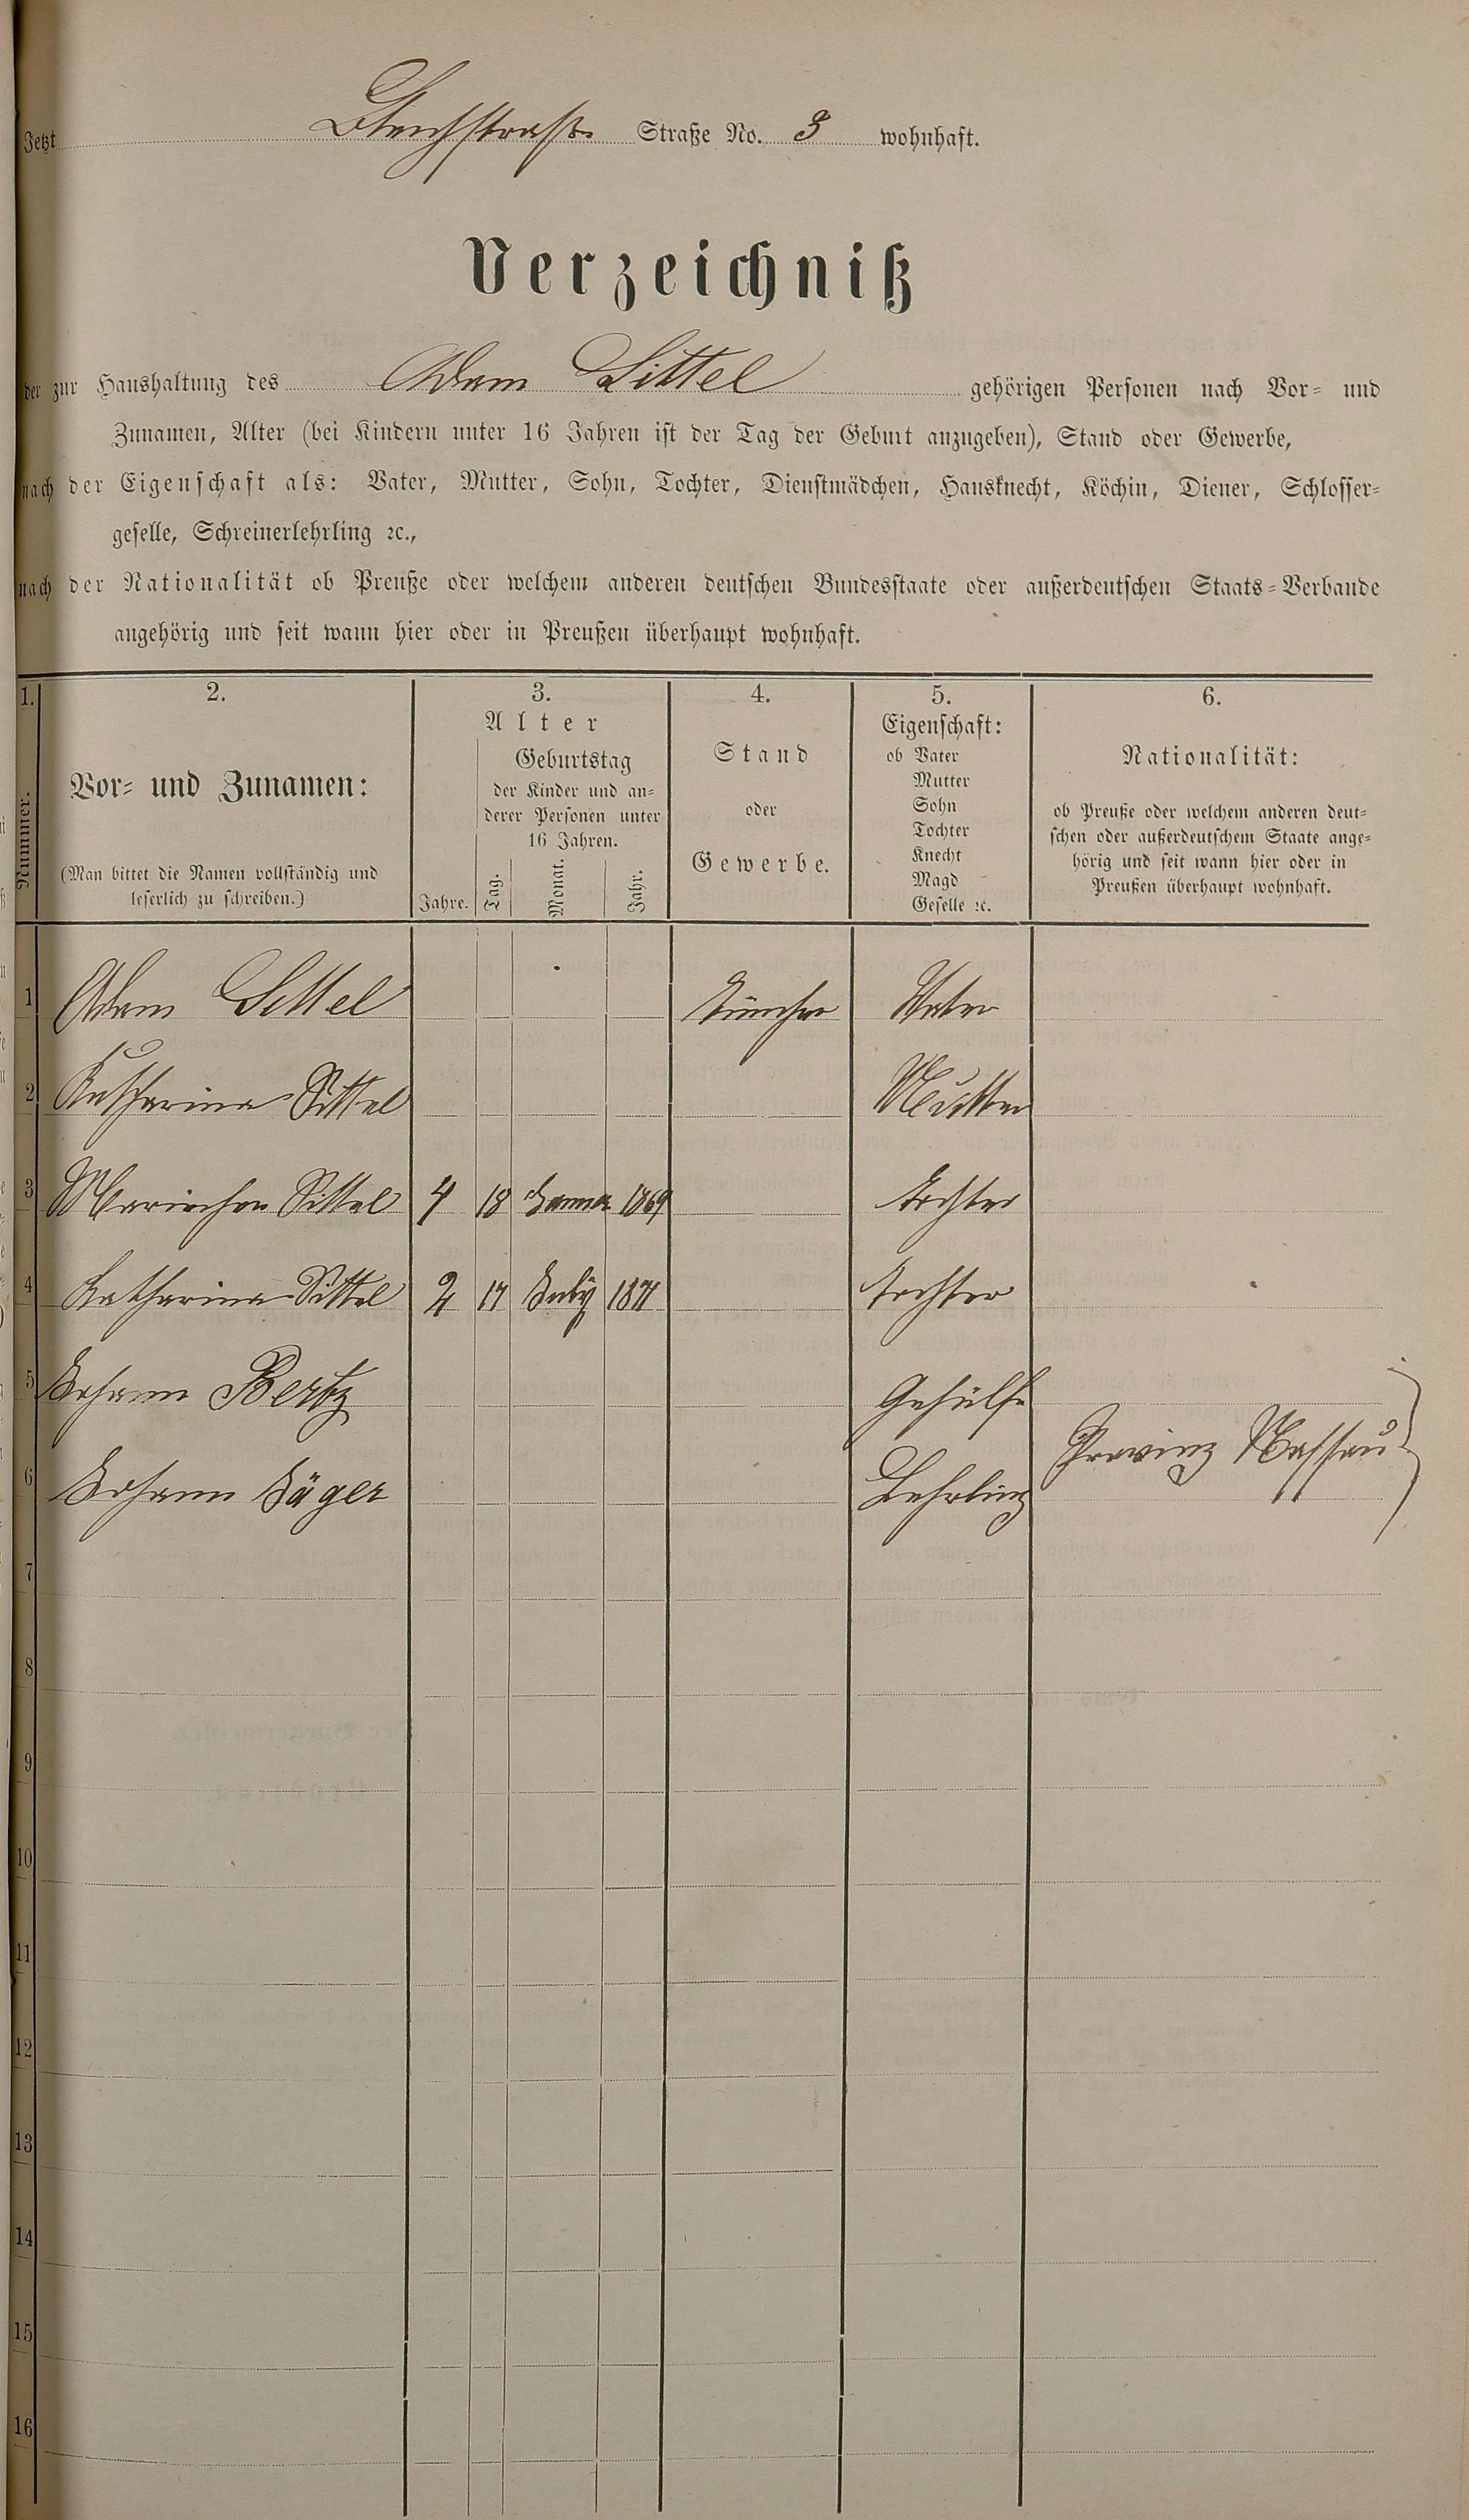 Jetzt Bleichstraße Straße No. 3 wohnhaft.
Verzeichniß
der zur Haushaltung des Adam Sittel gehörigen Personen nach Vor- und
Zunamen, Alter (bei Kindern unter 16 Jahren ist der Tag der Geburt anzugeben), Stand oder Gewerbe,
nach der Eigenschaft als: Vater, Mutter, Sohn, Tochter, Dienstmädchen, Hausknecht, Köchin, Diener, Schlosser-
geselle, Schreinerlehrling ꝛc.,
nach der Nationalität ob Preuße oder welchem anderen deutschen Bundesstaate oder außerdeutschen Staats-Verbande
angehörig und seit wann hier oder in Preußen überhaupt wohnhaft.
1. 2. 3. 4. 5. 6.
Nummer.
Vor- und Zunamen:
(Man bittet die Namen vollständig und
leserlich zu schreiben.)
Alter
Geburtstag
der Kinder und an-
derer Personen unter
16 Jahren.
Jahre. Tag. Monat. Jahr.
Stand
oder
Gewerbe.
Eigenschaft:
ob Vater
Mutter
Sohn
Tochter
Knecht
Magd
Geselle ꝛc.
Nationalität:
ob Preuße oder welchem anderen deut-
schen oder außerdeutschem Staate ange-
hörig und seit wann hier oder in
Preußen überhaupt wohnhaft.
1 Adam Sittel Tüncher Vater
2 Katharina Sittel Mutter
3 Mariechen Sittel 4 18 Januar 1869 Tochter
4 Katharina Sittel 2 17 July 1871 Tochter
5 Johann Bertz Gehülfe
Provinz Nassau
6 Johann Jäger Lehrling
7
8
9
10
11
12
13
14
15
16